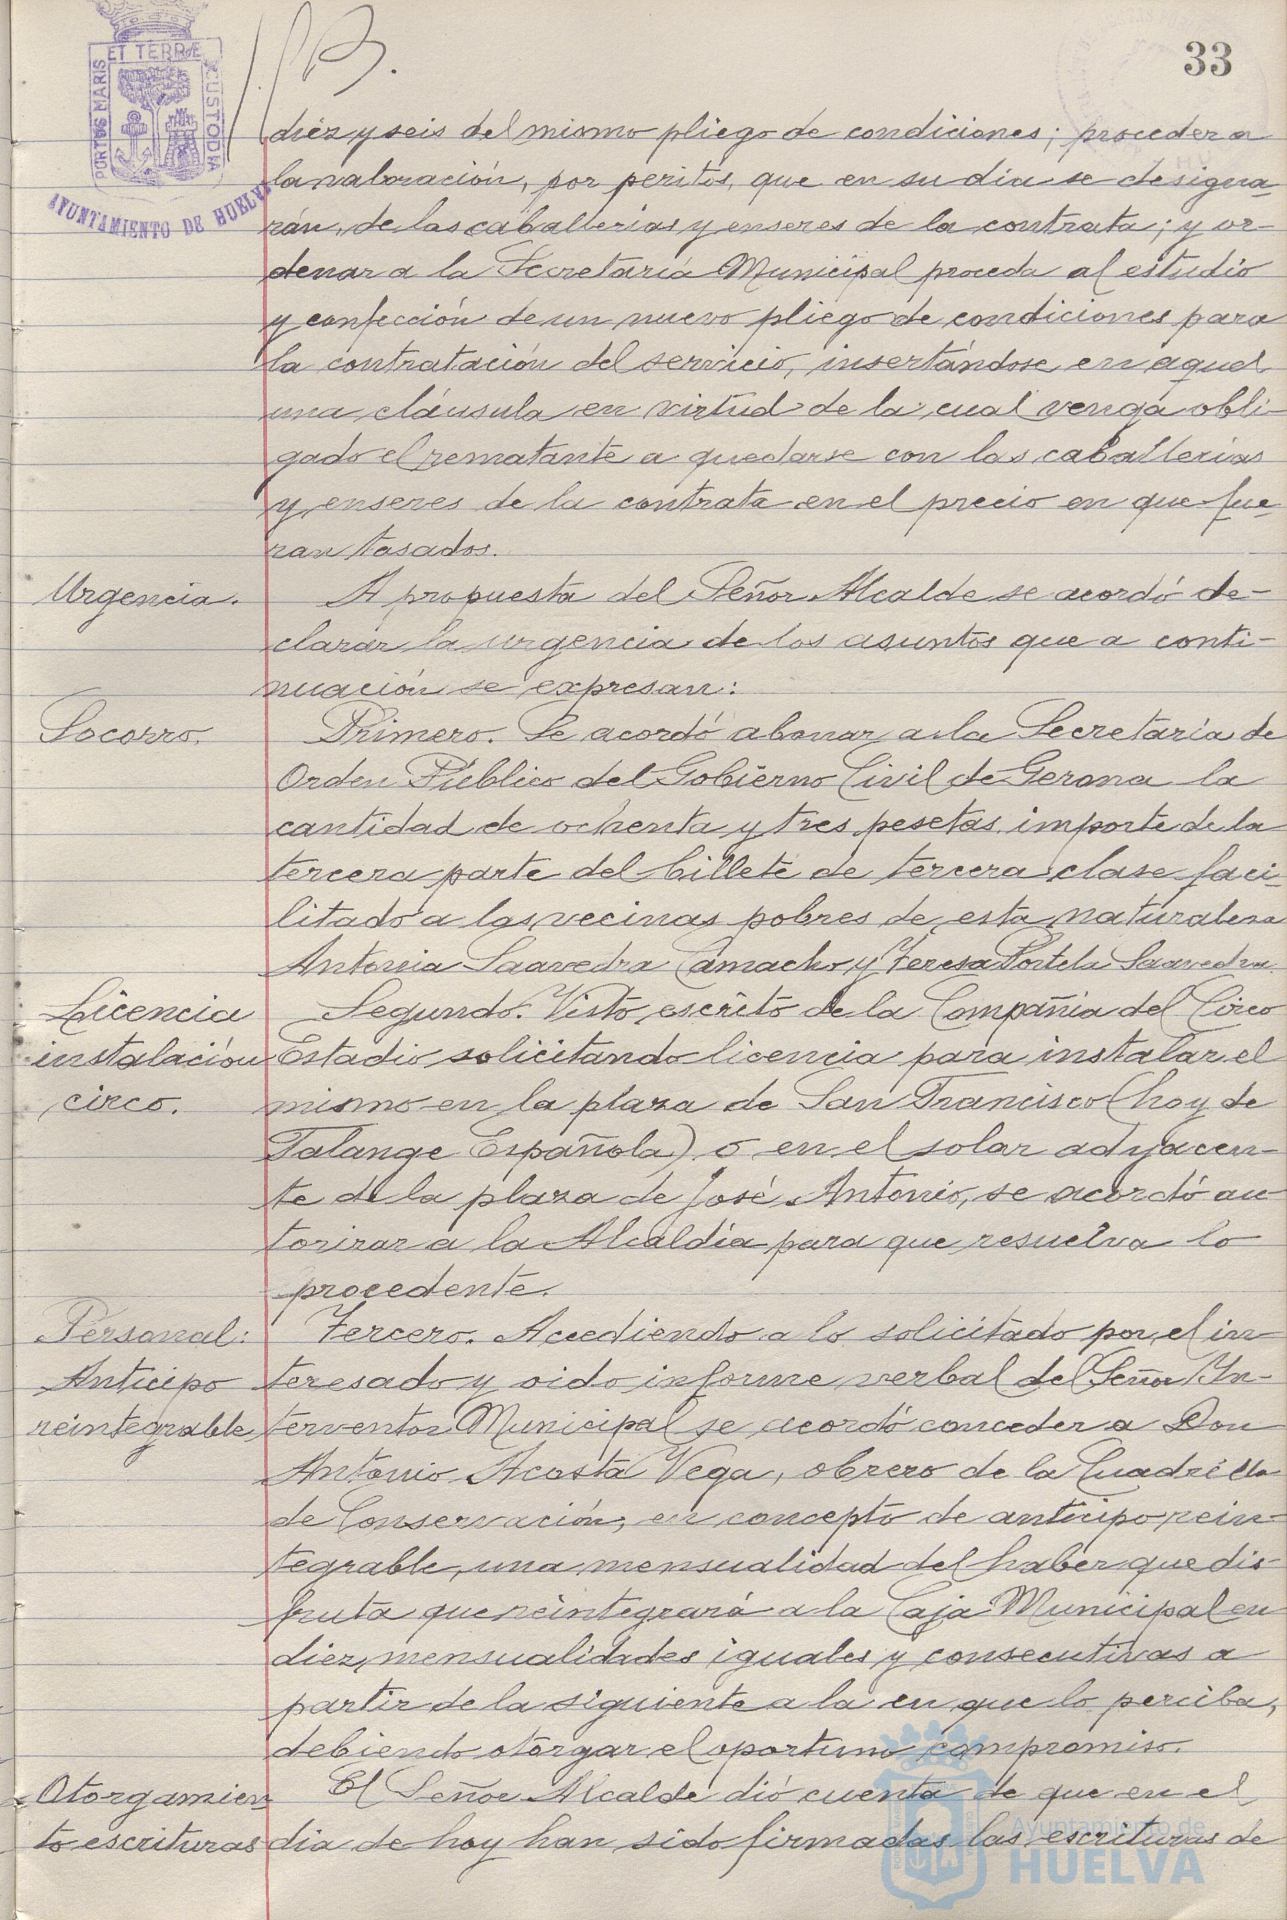 33
PORTUS MARIS ET TERRÆ CUSTODIA
AYUNTAMIENTO DE HUELVA
diez y seis del mismo pliego de condiciones; proceder a
la valoración, por peritos, que en su dia se designa-
rán, de las caballerias y enseres de la contrata; y or-
denar a la Secretaría Municipal proceda al estudio
y confección de un nuevo pliego de condiciones para
la contratación del servicio, insertándose en aquel
una cláusula en virtud de la cual venga obli-
gado el rematante a quedarse con las caballerías
y enseres de la contrata en el precio en que fue-
ran tasados.
Urgencia.
A propuesta del Señor Alcalde se acordó de-
clarar la urgencia de los asuntos que a conti-
nuación se expresan:
Socorro.
Primero. Se acordó abonar a la Secretaría de
Orden Público del Gobierno Civil de Gerona la
cantidad de ochenta y tres pesetas importe de la
tercera parte del billete de tercera clase faci-
litado a las vecinas pobres de esta naturaleza
Antonia Saavedra Camacho y Teresa Portela Saavedra.
Licencia
instalación
circo.
Segundo. Visto escrito de la Compañia del Circo
Estadio solicitando licencia para instalar el
mismo en la plaza de San Francisco (hoy de
Falange Española) o en el solar adyacen-
te de la plaza de José Antonio, se acordó au-
torizar a la Alcaldía para que resuelva lo
procedente.
Personal:
Anticipo
reintegrable
Tercero. Accediendo a lo solicitado por el in-
teresado y oido informe verbal del Señor In-
terventor Municipal se acordó conceder a Don
Antonio Acosta Vega, obrero de la Cuadrilla
de Conservación, en concepto de anticipo rein-
tegrable, una mensualidad del haber que dis-
fruta que reintegrará a la Caja Municipal en
diez mensualidades iguales y consecutivas a
partir de la siguiente a la en que lo perciba,
debiendo otorgar el oportuno compromiso.
Otorgamien-
to escrituras
El Señor Alcalde dió cuenta de que en el
dia de hoy han sido firmadas las escrituras de
Ayuntamiento de
HUELVA